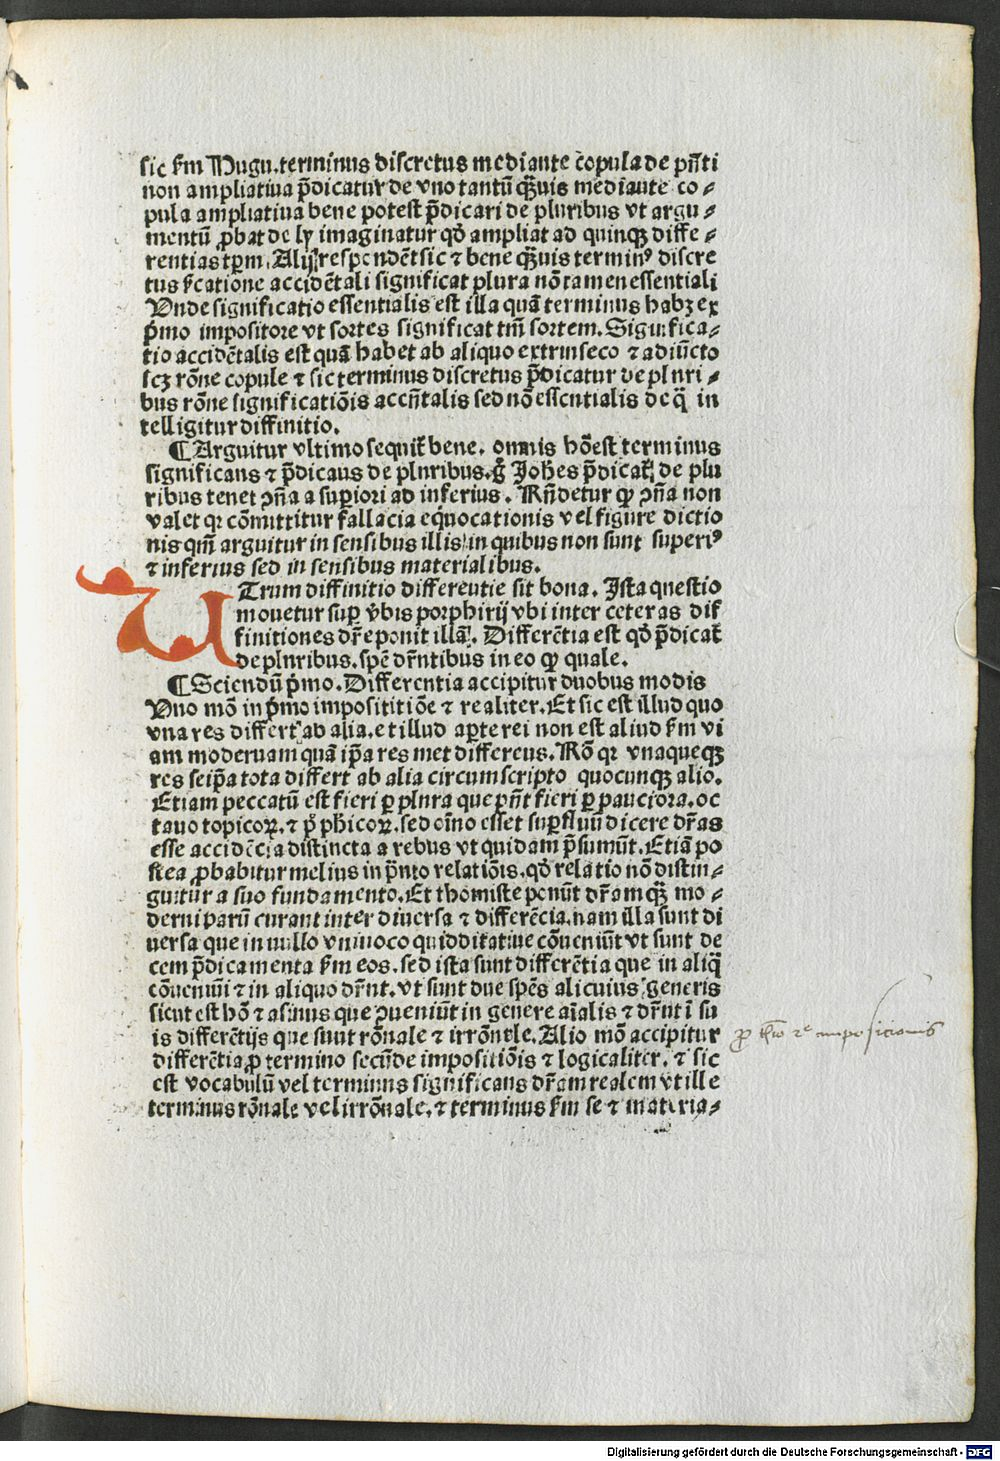 sic ẜm Hugu. terminus discretus mediante copula de pñti
non ampliatiua p̄dicatur de vno tantū q̄uis mediante co⸗
pula ampliatiua bene potest p̄dicari de pluribus vt argu⸗
mentū ꝓbat de ly imaginatur qđ ampliat ad quinqꝫ diffe⸗
rentias tp̄m. Alij respondēt sic ⁊ bene q̄uis terminꝰ discre
tus ẜcatione accidētali significat plura nō tamen essentiali
Unde significatio essentialis est illa quā terminus habꝫ ex
p̄mo impositore vt sortes significat tm̄ sortem. Significa⸗
tio accidētalis est quā habet ab aliquo extrinseco ⁊ adiūcto
scꝫ rōne copule ⁊ sic terminus discretus p̄dicatur de pluri⸗
bus rōne significatiōis accn̄talis sed nō essentialis de q̄ in
telligitur diffinitio.
¶ Arguitur vltimo sequit̄ bene. omnis hō est terminus
significans ⁊ p̄dicans de pluribus. g̊ Joh̄es p̄dicat̄ de plu
ribus tenet ꝯn̄a a suꝑiori ad inferius. Rn̄detur ꝙ ꝯn̄a non
valet qꝛ cōmittitur fallacia equocationis vel figure dictio
nis qm̄ arguitur in sensibus illis in quibus non sunt superiꝰ
⁊ inferius sed in sensibus materialibus.
UTrum diffinitio differentie sit bona. Ista questio
mouetur suꝑ v̄bis porphirij vbi inter ceteras dif
finitiones dr̄e ponit illā. Differētia est qđ p̄dicat̄
de pluribus. spē drn̄tibus in eo ꝙ quale.
¶ Sciendū p̄mo. Differentia accipitur duobus modis
Uno mō in p̄mo impositiōe ⁊ realiter. Et sic est illud quo
vna res differt ab alia. et illud aꝑte rei non est aliud ẜm vi
am modernam quā ip̄a res met differens. Rō qꝛ vnaqueqꝫ
res seip̄a tota differt ab alia circumscripto quocunqꝫ alio.
Etiam peccatū est fieri ꝑ plura que pn̄t fieri ꝑ pauciora. oc
tauo topicoꝝ. ⁊ p̊ ph̄icoꝝ. sed oīno esset suꝑfluū dicere dr̄as
esse accidēcia distincta a rebus vt quidam p̄sumūt. Etiā po
stea ꝓbabitur melius in p̄nto relatiōis. qđ relatio nō distin⸗
guitur a suo fundamento. Et thomiste ponūt dr̄am quā mo⸗
derni parū curant inter diuersa ⁊ differēcia. nam illa sunt di
uersa que in nullo vniuoco quidditatiue cōueniūt vt sunt de
cem p̄dicamenta ẜm eos. sed ista sunt differētia que in aliq̄
cōueniūt ⁊ in aliquo drn̄t. vt sunt due spēs alicuius generis
sicut est hō ⁊ asinus que ꝯueniūt in genere aīalis ⁊ drn̄t ī su
is differētijs que sunt rōnale ⁊ irrōnale. Alio mō accipitur
differētia ꝓ termino secūde impositiōis ⁊ logicaliter. ⁊ sic
est vocabulū vel terminus significans dr̄am realem vt ille
terminus rōnale vel irrōnale. ⁊ terminus ẜm se ⁊ materia⸗
ꝓ t̄io 2ᵉ imposicionis
Digitalisierung gefördert durch die Deutsche Forschungsgemeinschaft - DFG